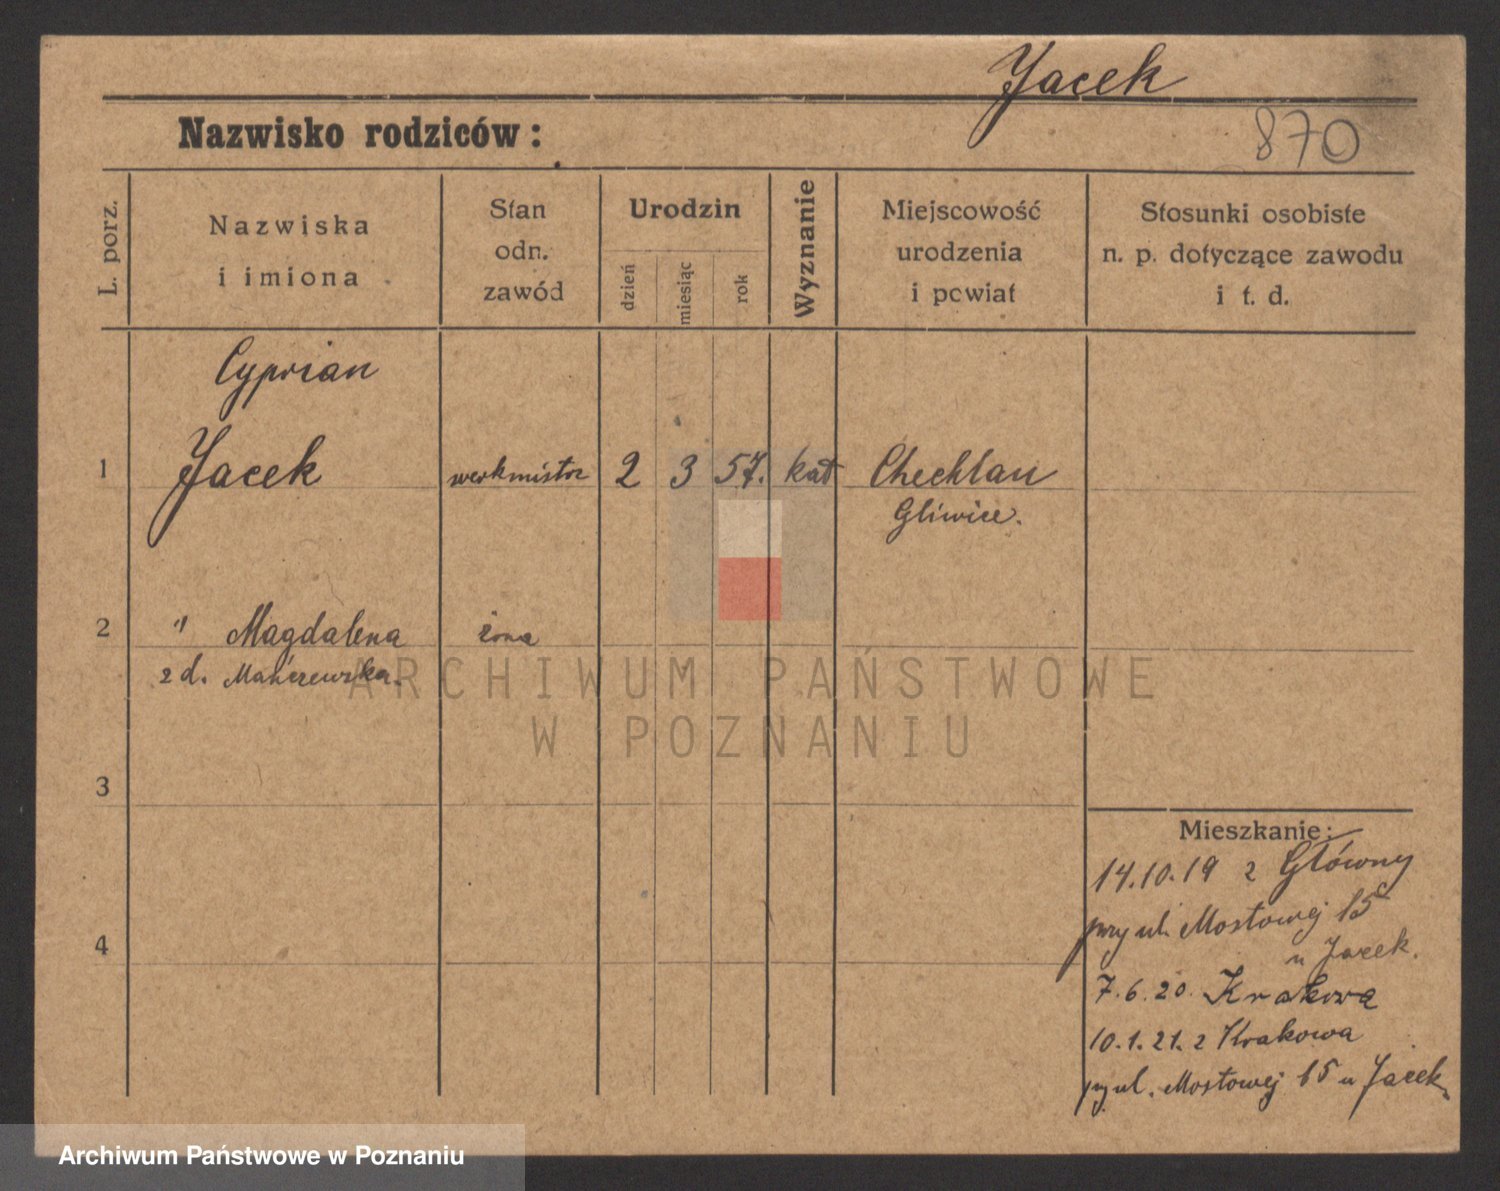 Jacek
870
Nazwisko rodziców:
L. porz.
Nazwiska
i imiona
Stan
odn.
zawód
Urodzin
dzień
miesiąc
rok
Wyznanie
Miejscowość
urodzenia
i powiat
Stosunki osobiste
n. p. dotyczące zawodu
i t. d.
Cyprian
1 Jacek werkmistrz 2 3 57. kat Chechlau
Gliwice.
2 " Magdalena żona
z d. Mańczewska.
ARCHIWUM PAŃSTWOWE
W POZNANIU
3
Mieszkanie:
14.10.19 z Główny
przy ul. Mostowej 15
u Jacek.
4
7.6.20. Krakowa
10.1.21. z Krakowa
przy ul. Mostowej 15 u Jacek
Archiwum Państwowe w Poznaniu